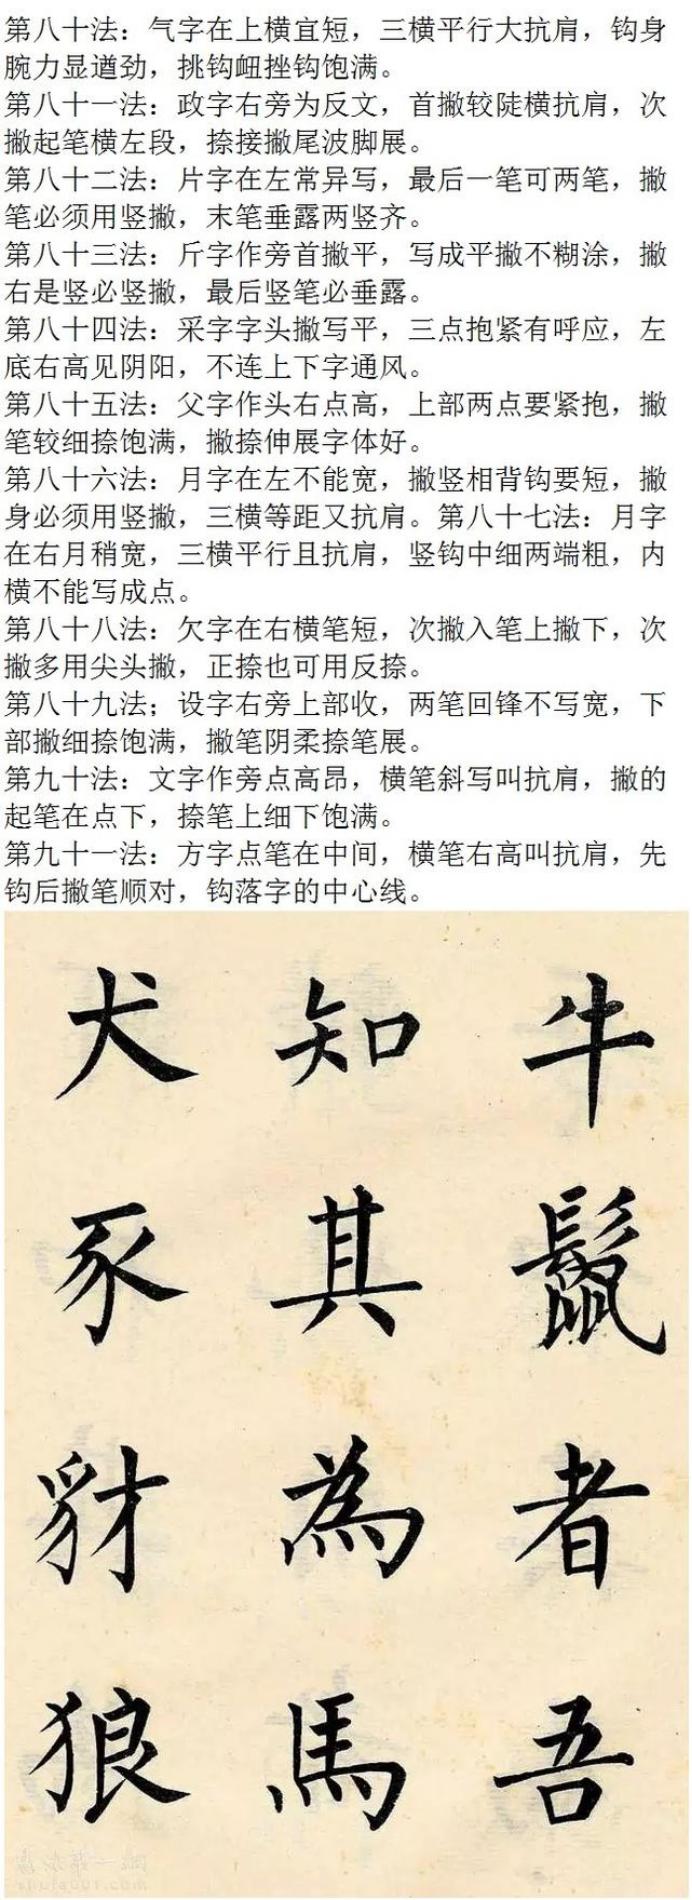 第八十法：气字在上横宜短，三横平行大抗肩，钩身
腕力显遒劲，挑钩衄挫钩饱满。
第八十一法：政字右旁为反文，首撇较陡横抗肩，次
撇起笔横左段，捺接撇尾波脚展。
第八十二法：片字在左常异写，最后一笔可两笔，撇
笔必须用竖撇，末笔垂露两竖齐。
第八十三法：斤字作旁首撇平，写成平撇不糊涂，撇
右是竖必竖撇，最后竖笔必垂露。
第八十四法：采字字头撇写平，三点抱紧有呼应，左
底右高见阴阳，不连上下字通风。
第八十五法：父字作头右点高，上部两点要紧抱，撇
笔较细捺饱满，撇捺伸展字体好。
第八十六法：月字在左不能宽，撇竖相背钩要短，撇
身必须用竖撇，三横等距又抗肩。第八十七法：月字
在右月稍宽，三横平行且抗肩，竖钩中细两端粗，内
横不能写成点。
第八十八法：欠字在右横笔短，次撇入笔上撇下，次
撇多用尖头撇，正捺也可用反捺。
第八十九法；设字右旁上部收，两笔回锋不写宽，下
部撇细捺饱满，撇笔阴柔捺笔展。
第九十法：文字作旁点高昂，横笔斜写叫抗肩，撇的
起笔在点下，捺笔上细下饱满。
第九十一法：方字点笔在中间，横笔右高叫抗肩，先
钩后撇笔顺对，钩落字的中心线。
牛鬣者吾
知其為馬
犬豕豺狼